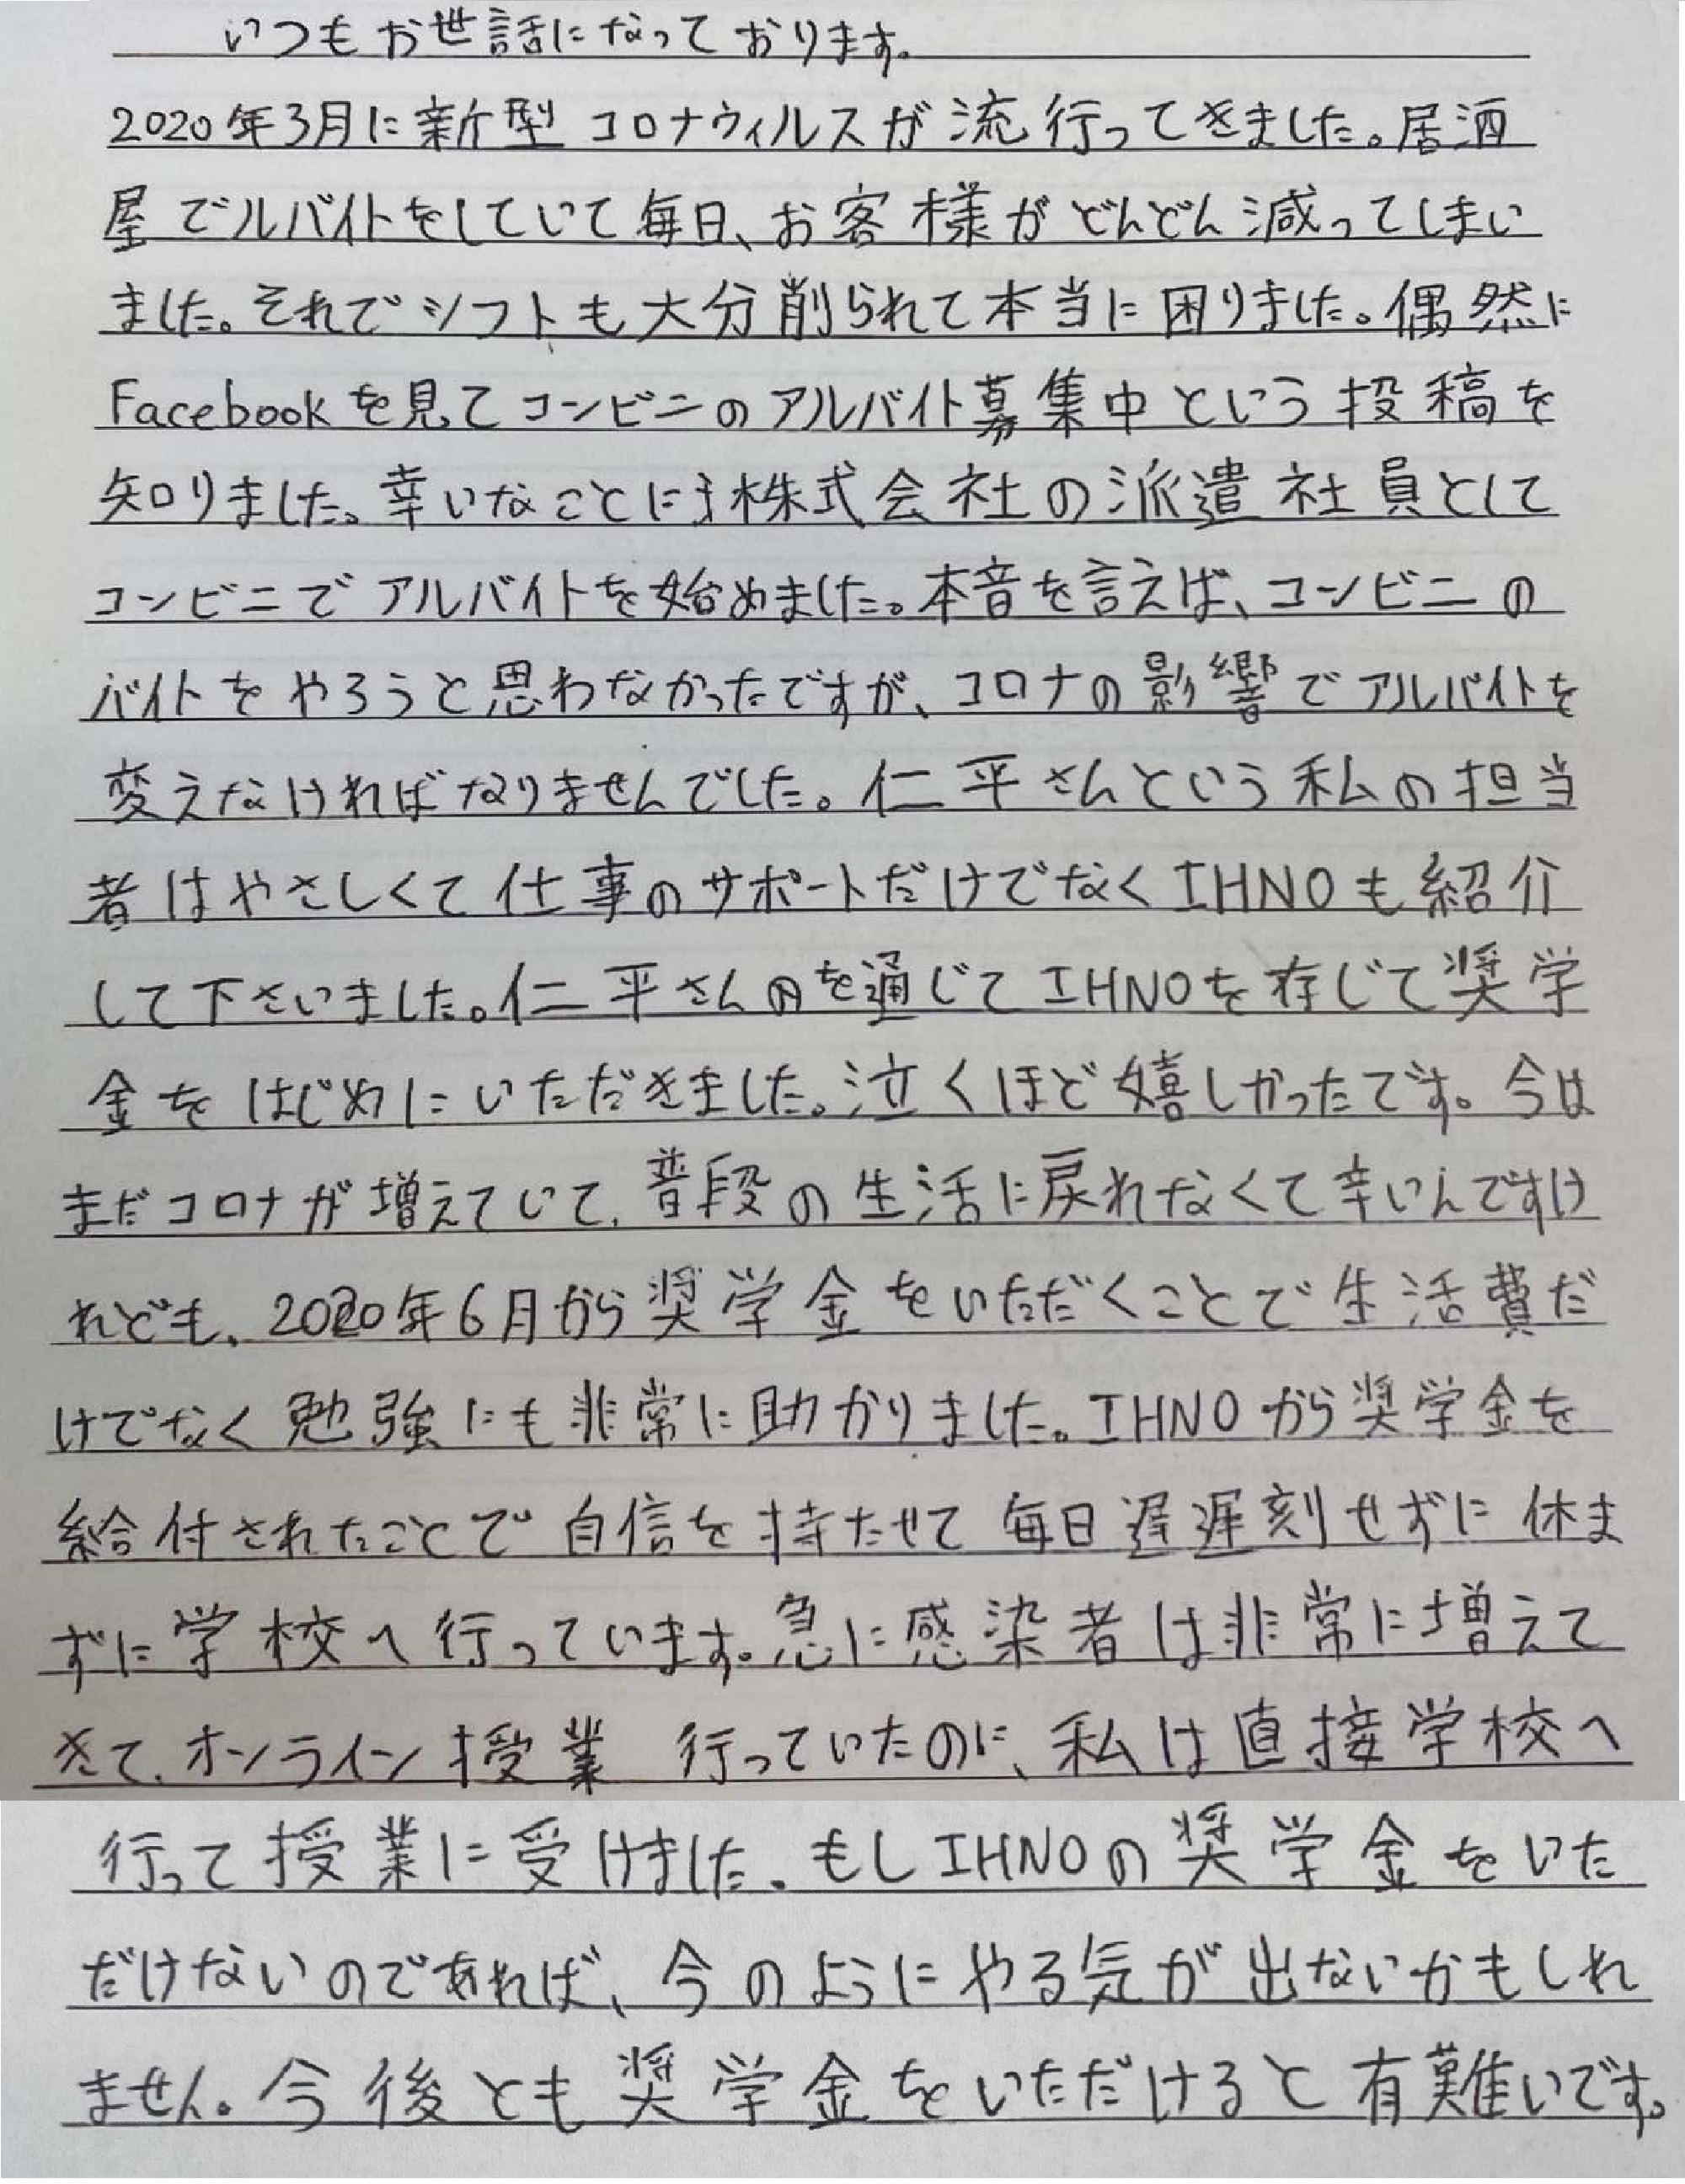 いつもお世話になっております。
2020年3月に新型コロナウィルスが流行ってきました。居酒
屋でルバイトをしていて毎日、お客様がどんどん減ってしまい
ました。それでシフトも大分削られて本当に困りました。偶然に
Facebookを見てコンビニのアルバイト募集中という投稿を
知りました。幸いなことに株式会社の派遣社員として
コンビニでアルバイトを始めました。本音を言えば、コンビニの
バイトをやろうと思わなかったですが、コロナの影響でアルバイトを
変えなければなりませんでした。仁平さんという私の担当
者はやさしくて仕事のサポートだけでなくIHNOも紹介
して下さいました。仁平さんを通じてIHNOを存じて奨学
金をはじめにいただきました。泣くほど嬉しかったです。今は
まだコロナが増えていて、普段の生活に戻れなくて辛いんですけ
れども、2020年6月から奨学金をいただくことで生活費だ
けでなく勉強にも非常に助かりました。IHNOから奨学金を
給付されたことで自信を持たせて毎日遅刻せずに休ま
ずに学校へ行っています。急に感染者は非常に増えて
きて、オンライン授業 行っていたのに、私は直接学校へ
行って授業に受けました。もしIHNOの奨学金をいた
だけないのであれば、今のようにやる気が出ないかもしれ
ません。今後とも奨学金をいただけると有難いです。